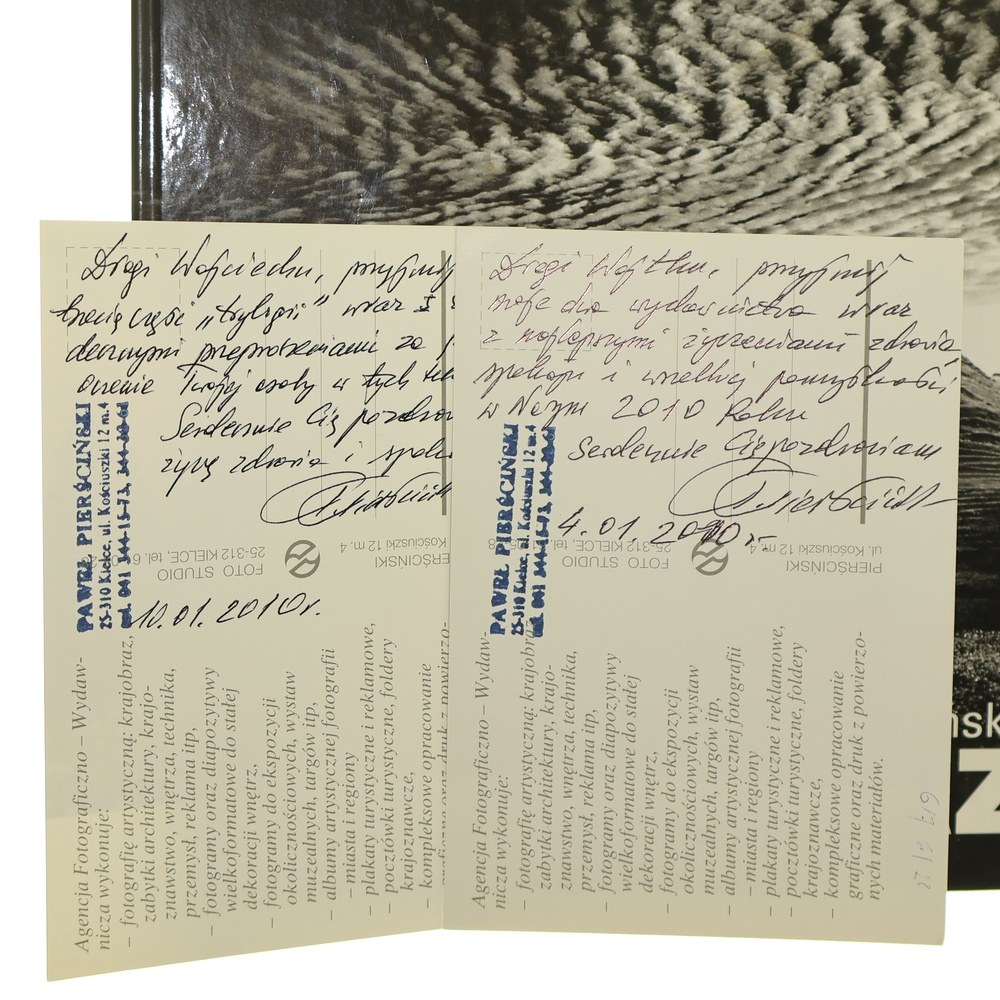 Drogi Wojciechu, przyjmij
trzecią część "trylogii" wraz z
decznymi przeprosinami za
Twojej osoby w tych
Serdecznie Cię pozdro
życzę zdrowia i spoko
PAWEŁ PIERŚCIŃSKI
25-310 Kielce, ul. Kościuszki 12 m.4
tel. 041 344-15-73,
10.01.2010r.
PIERŚCIŃSKI
FOTO STUDIO
25-312 KIELCE, tel.
Kościuszki 12 m. 4
Agencja Fotograficzno – Wydaw-
nicza wykonuje:
– fotografię artystyczną: krajobraz,
zabytki architektury, krajo-
znawstwo, wnętrza, technika,
przemysł, reklama itp,
– fotogramy oraz diapozytywy
wielkoformatowe do stałej
dekoracji wnętrz,
– fotogramy do ekspozycji
okolicznościowych, wystaw
muzealnych, targów itp,
– albumy artystycznej fotografii
– miasta i regiony
– plakaty turystyczne i reklamowe,
– pocztówki turystyczne, foldery
krajoznawcze,
– kompleksowe opracowanie
Drogi Wojtku, przyjmij
moje dwa wydawnictwa wraz
z najlepszymi życzeniami zdrowia
spokoju i wszelkiej pomyślności
w Nowym 2010 Roku
Serdecznie Cię pozdrawiam
4.01.2010 r.
PAWEŁ PIERŚCIŃSKI
25-310 Kielce, ul. Kościuszki 12 m.4
tel. 041 344-15-73,
PIERŚCIŃSKI
ul. Kościuszki 12 m. 4
FOTO STUDIO
25-312 KIELCE, tel.
Agencja Fotograficzno – Wydaw-
nicza wykonuje:
– fotografię artystyczną: krajobraz,
zabytki architektury, krajo-
znawstwo, wnętrza, technika,
przemysł, reklama itp,
– fotogramy oraz diapozytywy
wielkoformatowe do stałej
dekoracji wnętrz,
– fotogramy do ekspozycji
okolicznościowych, wystaw
muzealnych, targów itp,
– albumy artystycznej fotografii
– miasta i regiony
– plakaty turystyczne i reklamowe,
– pocztówki turystyczne, foldery
krajoznawcze,
– kompleksowe opracowanie
graficzne oraz druk z powierzo-
nych materiałów.
ńsk
Z